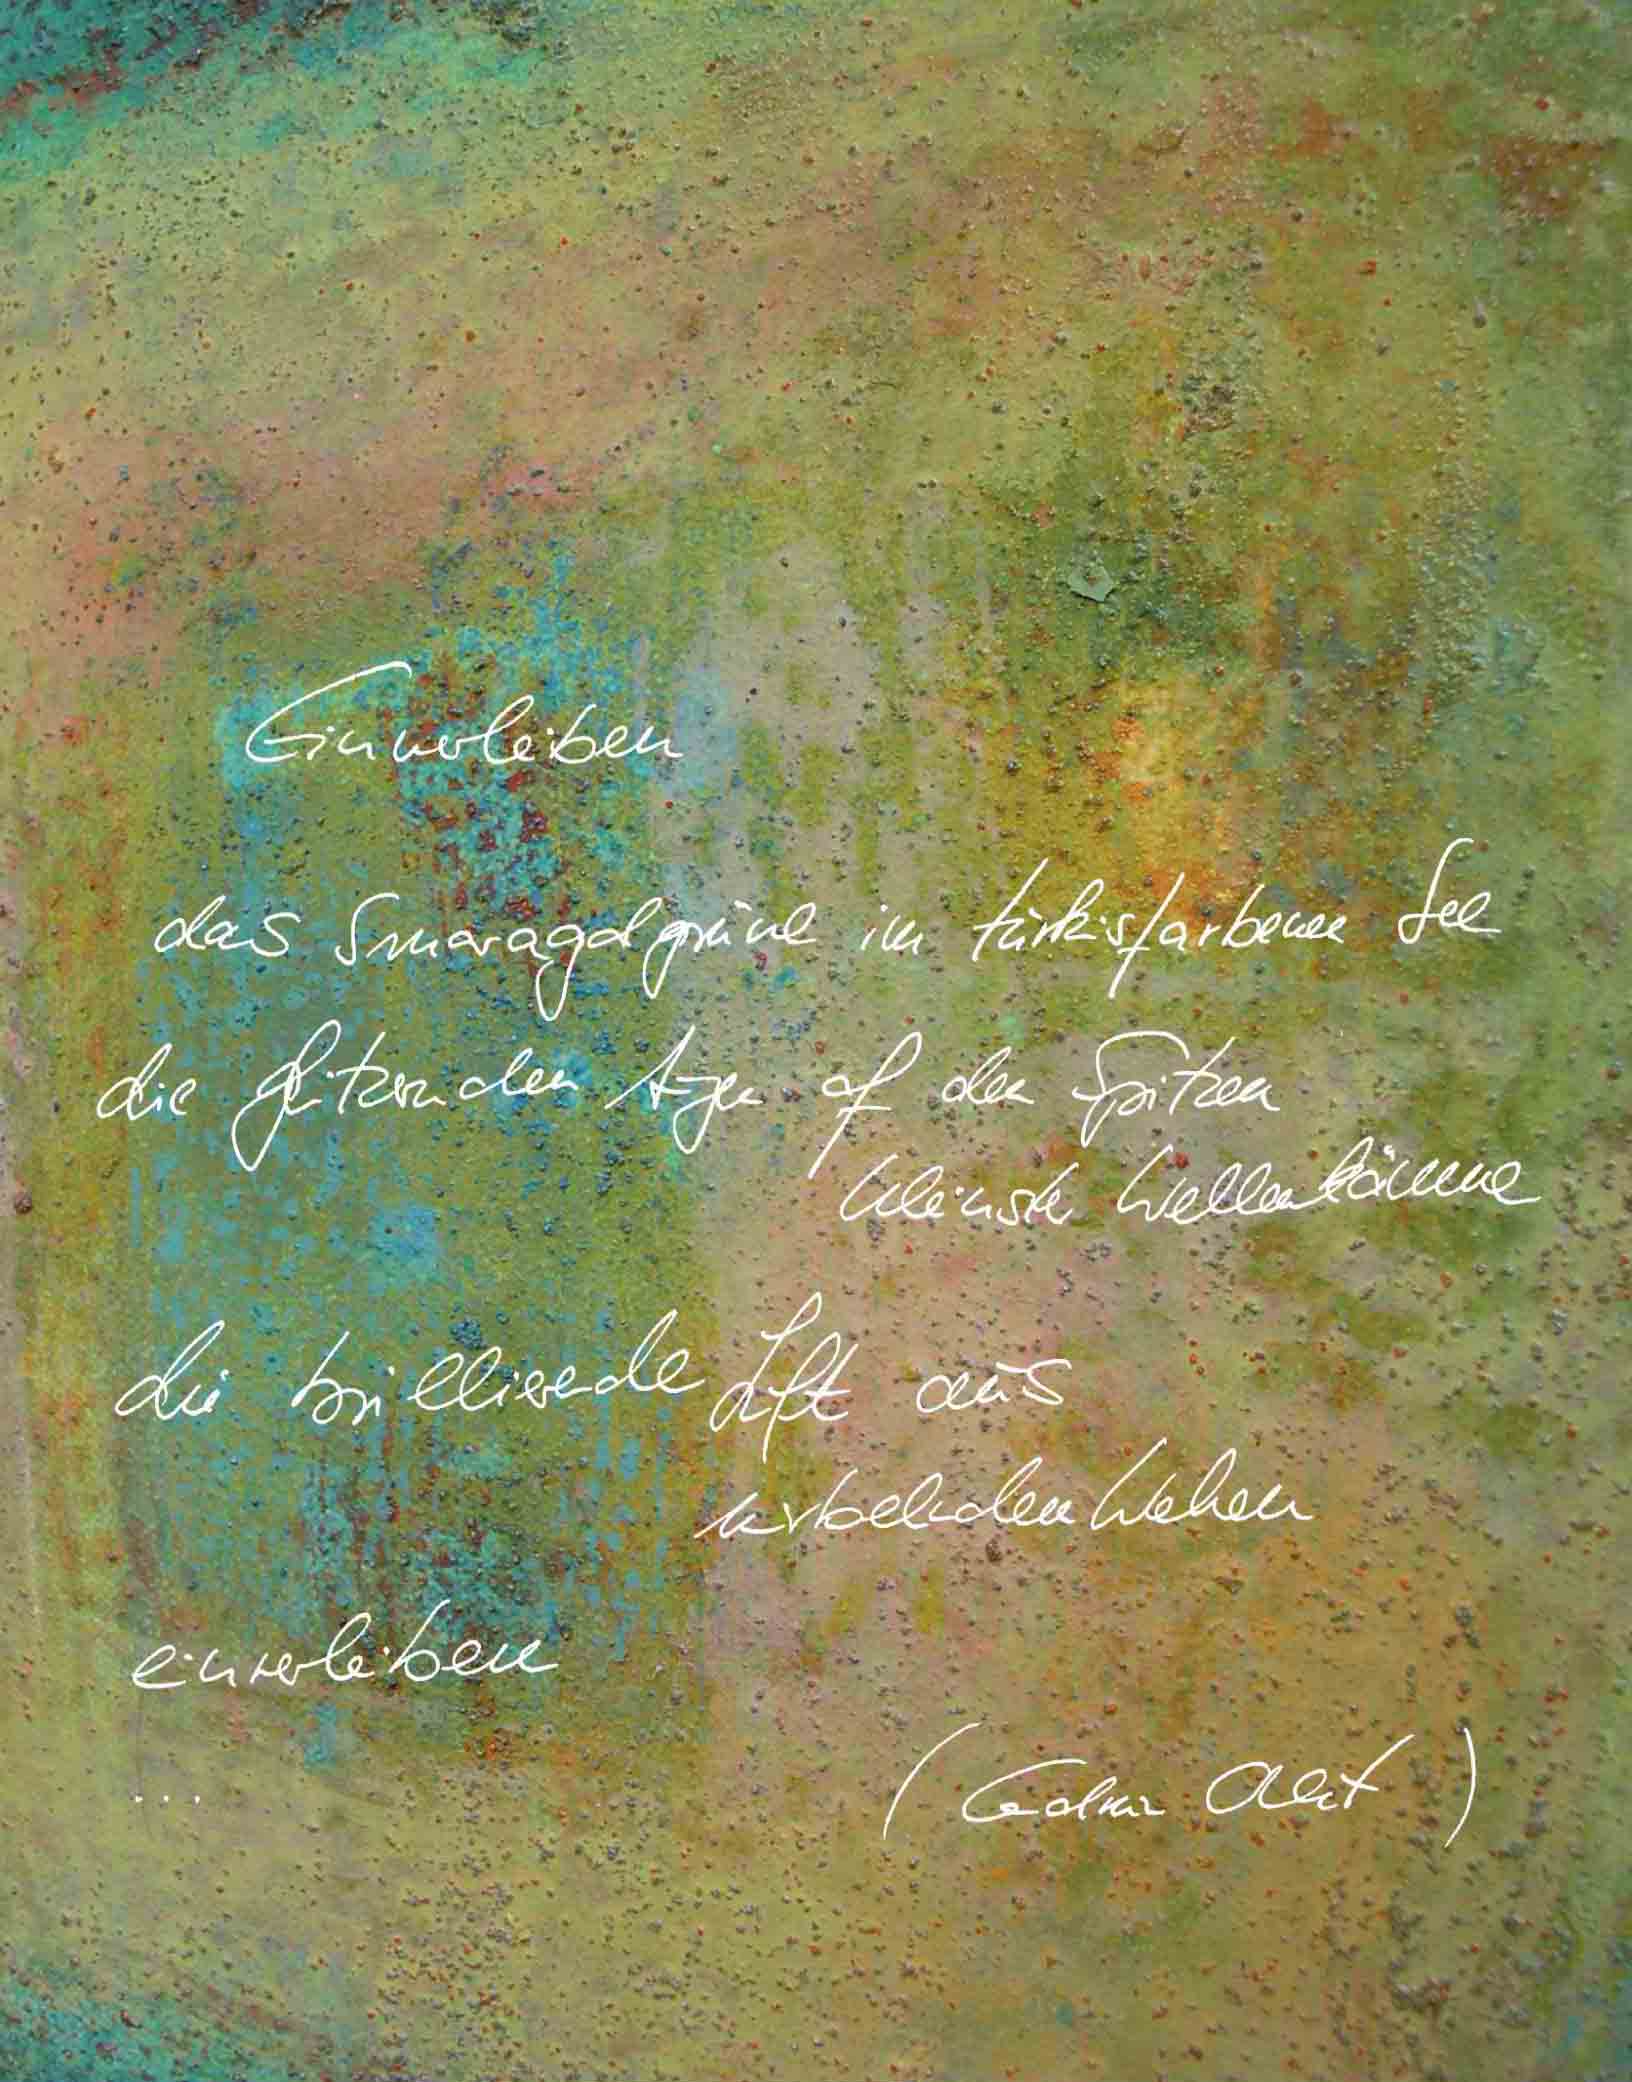 Einverleiben
das Smaragdgrüne im türkisfarbenen See
die glitzernden Augen auf den Spitzen
kleinster Wellenkämme
die brillierende Luft aus
wirbelnden Wehen
einverleiben
...